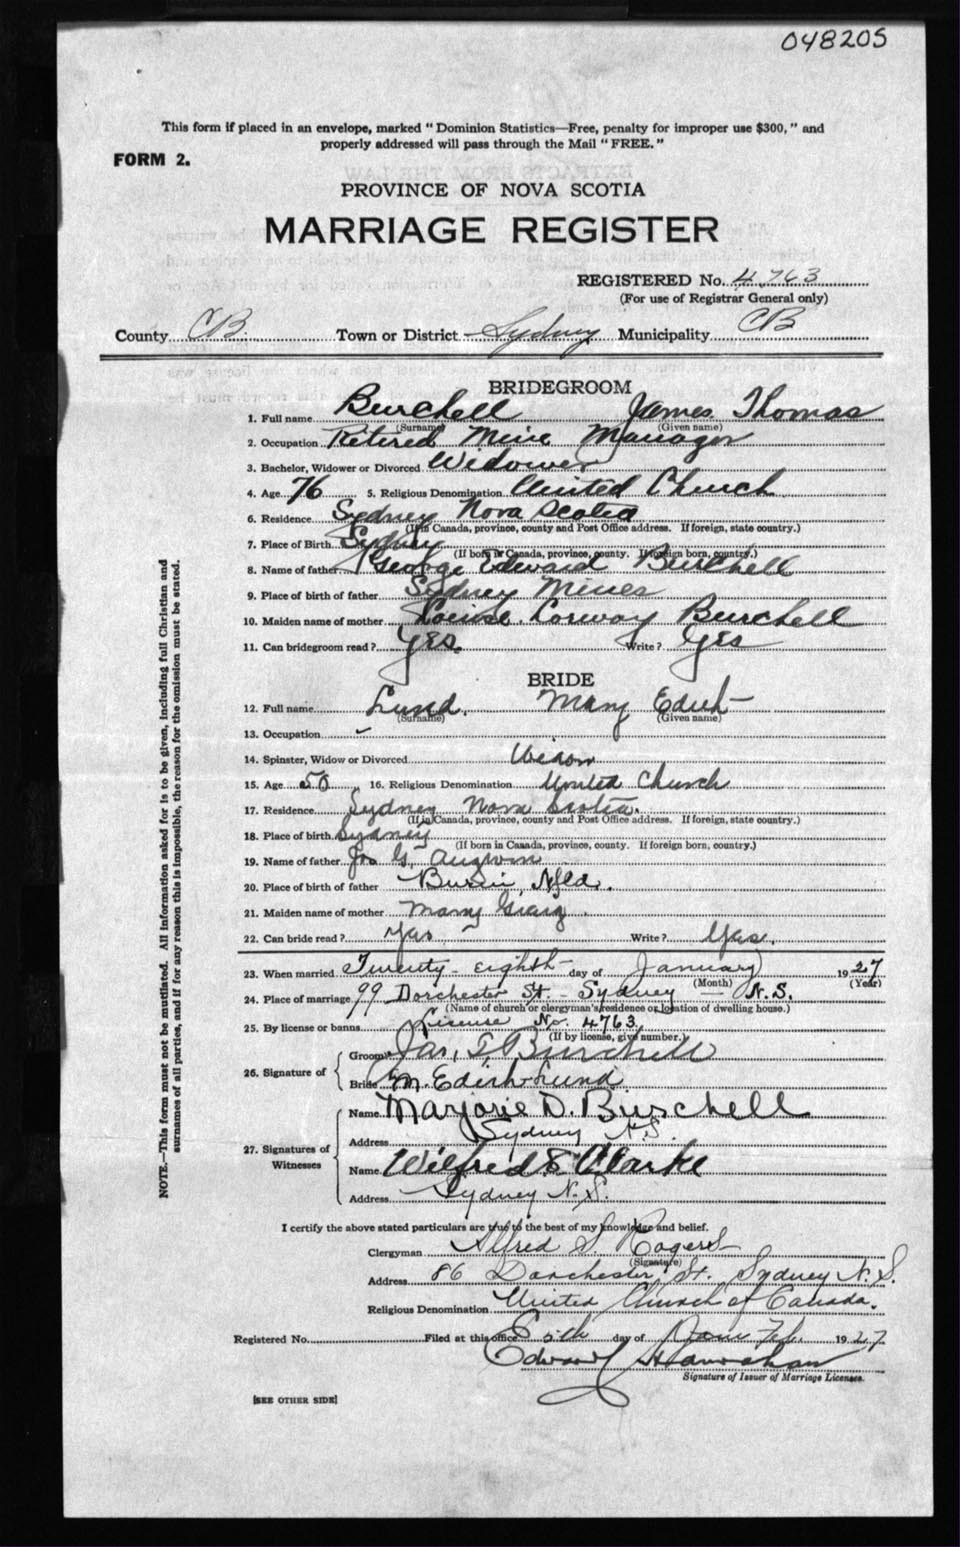 048205
This form if placed in an envelope, marked "Dominion Statistics—Free, penalty for improper use $300," and
properly addressed will pass through the Mail "FREE."
FORM 2.
PROVINCE OF NOVA SCOTIA
MARRIAGE REGISTER
REGISTERED No. 4763
(For use of Registrar General only)
County CB Town or District Sydney Municipality CB
BRIDEGROOM
1. Full name Burchell James Thomas
(Surname) (Given name)
2. Occupation Retired Mine Manager
3. Bachelor, Widower or Divorced Widower
4. Age 76 5. Religious Denomination United Church
6. Residence Sydney Nova Scotia
(If in Canada, province, county and Post Office address. If foreign, state country.)
7. Place of Birth Sydney
(If born in Canada, province, county. If foreign born, country.)
8. Name of father George Edward Burchell
9. Place of birth of father Sydney Mines
10. Maiden name of mother Louise Lorway Burchell
11. Can bridegroom read? Yes. Write? Yes
BRIDE
12. Full name Lund. Mary Edith
(Surname) (Given name)
13. Occupation –
14. Spinster, Widow or Divorced Widow
15. Age 50 16. Religious Denomination United Church
17. Residence Sydney Nova Scotia.
(If in Canada, province, county and Post Office address. If foreign, state country.)
18. Place of birth Sydney
(If born in Canada, province, county. If foreign born, country.)
19. Name of father G. Augwin
20. Place of birth of father Burin, Nfld.
21. Maiden name of mother Mary
22. Can bride read? Yes Write? Yes.
23. When married Twenty-eighth day of January 1927
(Month) (Year)
24. Place of marriage 99 Dorchester St. – Sydney — N.S.
(Name of church or clergyman's residence or location of dwelling house.)
25. By license or banns License No. 4763
(If by license, give number.)
26. Signature of
Groom Jas. T. Burchell
Bride M. Edith Lund
27. Signatures of Witnesses
Name Marjorie D. Burchell
Address Sydney N.S.
Name Wilfred E Clarke
Address Sydney N.S.
I certify the above stated particulars are true to the best of my knowledge and belief.
Clergyman Alfred S. Rogers
(Signature)
Address 86 Dorchester St. Sydney N.S.
Religious Denomination United Church of Canada.
Registered No. Filed at this office 5th day of Feb. 1927
Edward Hanrahan
Signature of Issuer of Marriage Licenses.
[SEE OTHER SIDE]
NOTE.—This form must not be mutilated. All information asked for is to be given, including full Christian and
surnames of all parties, and if for any reason this is impossible, the reason for the omission must be stated.